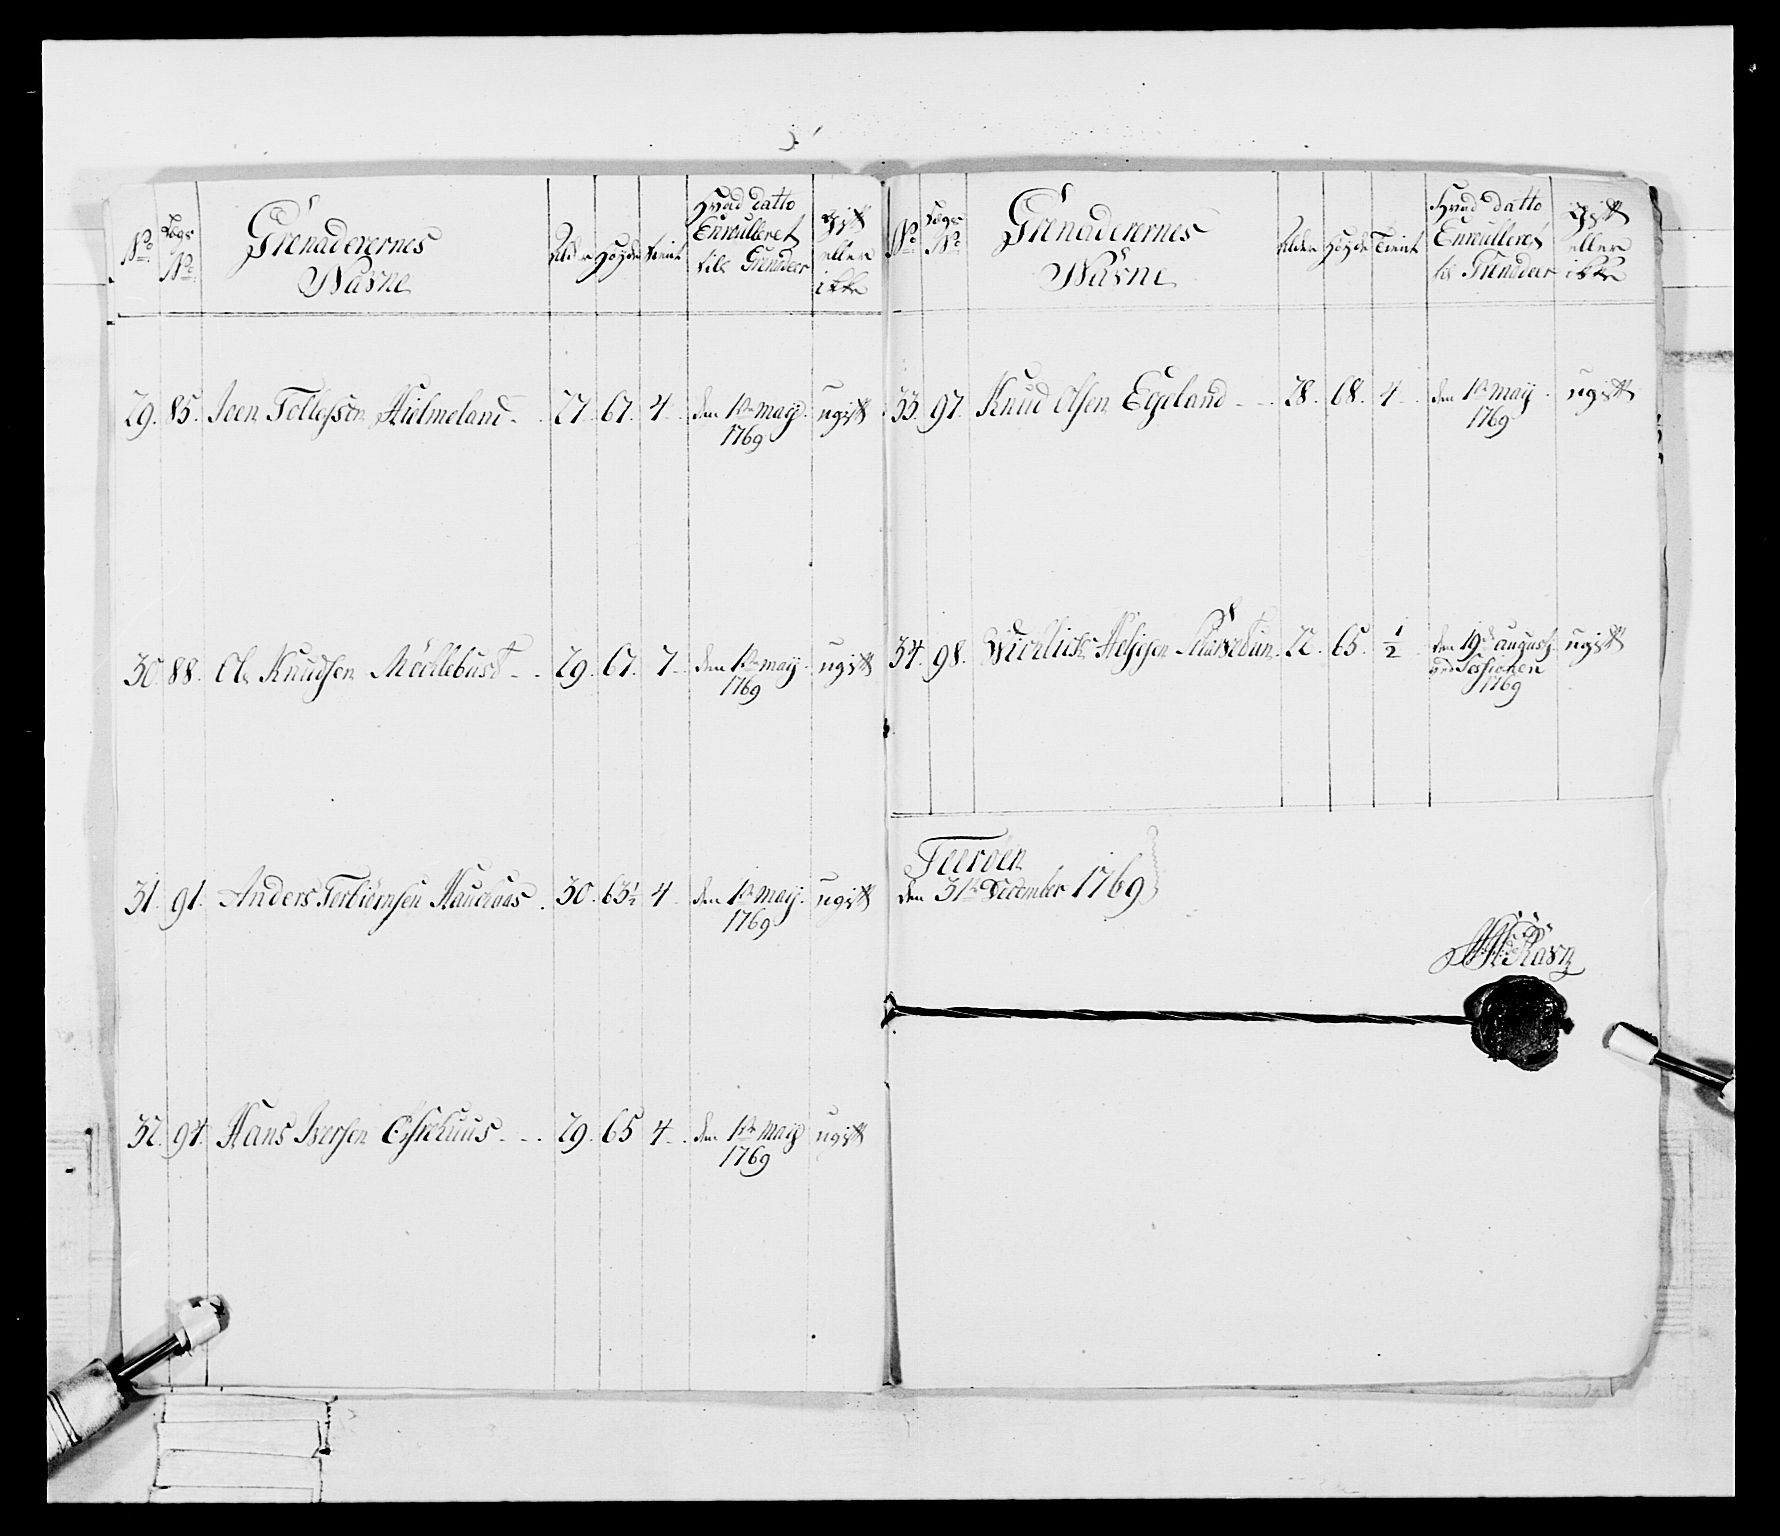 No Lægs No Grenaderernes Nafne Alder Høyde Tient Hvad datto Enrulleret till Grenadeer Gift eller ikke
29. 85. Joen Tollefsen Hielmeland 27. 67. 4. den 1te maij 1769 ugift
30. 88. Ole Knudsen Möcllebust 29. 67. 7. den 1te maij 1769 ugift
31. 91. Anders Torbiörnsen Hauchaas 30. 63½ 4 den 1te maij 1769 ugift
32. 94. Hans Iversen 29. 65 4 den 1te maij 1769 ugift
No Lægs No Grenaderernes Nafne Alder Høyde Tient Hvad datto Enrulleret til Grenadeer Gift eller ikke
33. 97. Knud Olsen Egeland 28. 68. 4 den 1te maij 1769 ugift
34. 98. Helgesen 22. 65. ½ den 19de august ved Sessionen 1769 ugift
den 31te December 1769